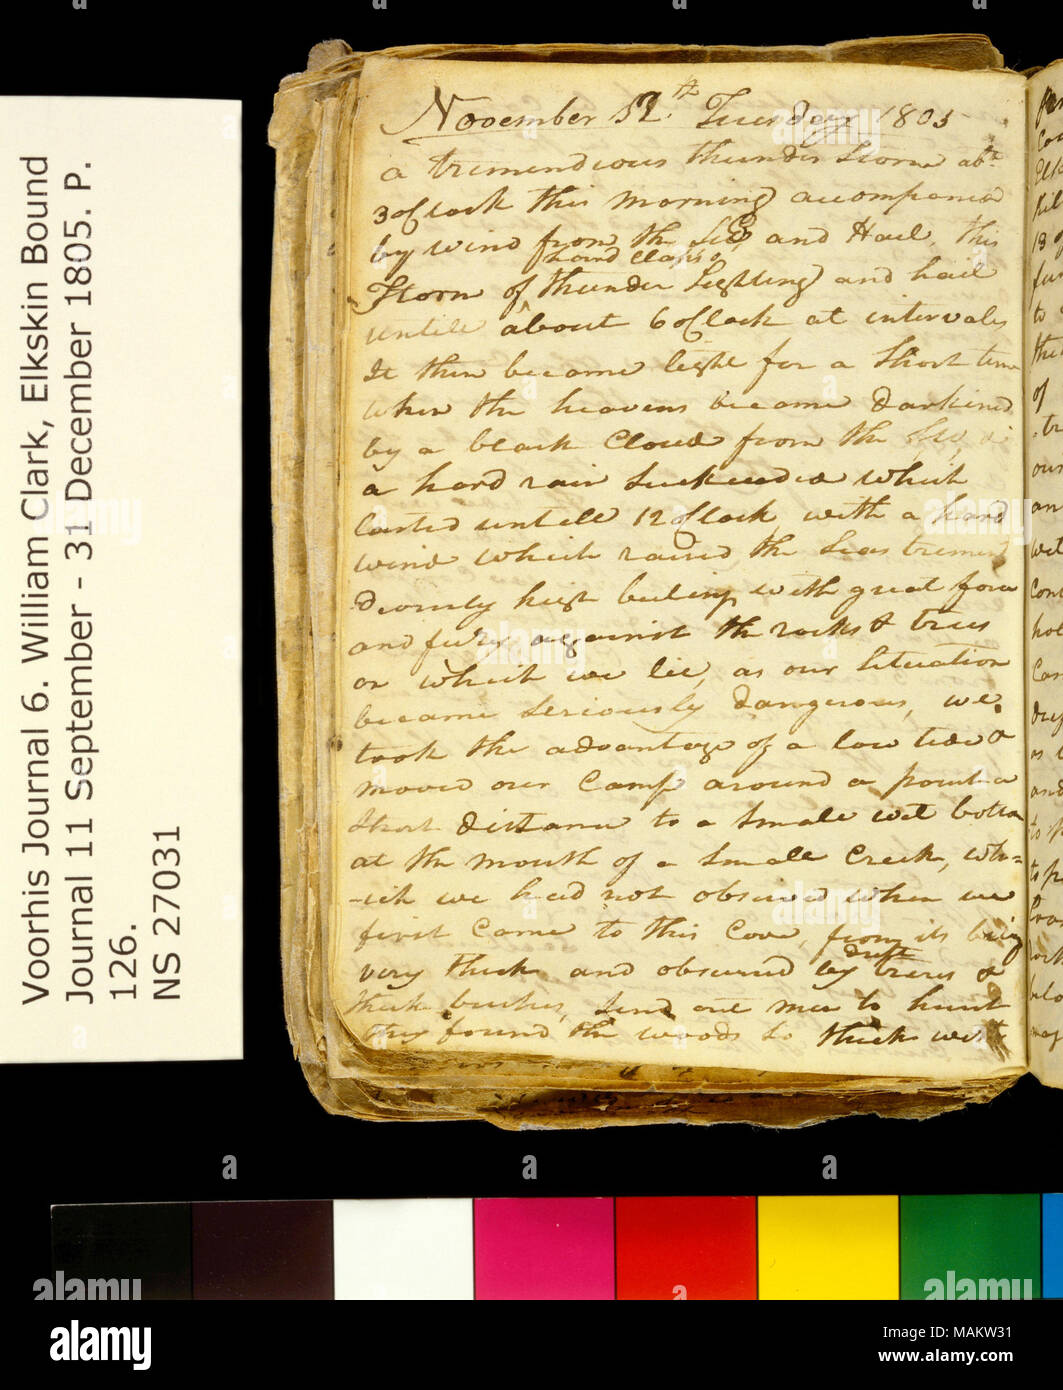 Voorhis Journal 6. William Clark, Elkskin Bound
Journal 11 September - 31 December 1805. P.
126.
NS 27031
November 12th Tuesday 1805
a tremendious thunder Storm abt
3 oClock this morning accompanied
by wind from the SW and Hail, this
Loud Claps
Storm of thunder Lighting and hail
untile about 6 oClock at intervales
It then became light for a Short time
when the heavens became darkined
by a black Cloud from the SW, &
a hard rain Suckceeded which
lasted untill 12 oClock with a hard
wind which raised the Seas tremen
diously high braking with great force
and fury against the rocks & trees
on which we lie, as our Situation
became Seriously dangerous, we
took the advantage of a low tide &
moved our Camp around a point a
Short distance to a Small wet bottom
at the mouth of a Small Creek, whi=
-ich we had not observed when we
first Came to this Cove, from its being
drift
very thick and obsured by trees &
thick bushes, Send out men to hunt
they found the woods So thick with
alamy stock photo
Image ID: MAKW31
www.alamy.com